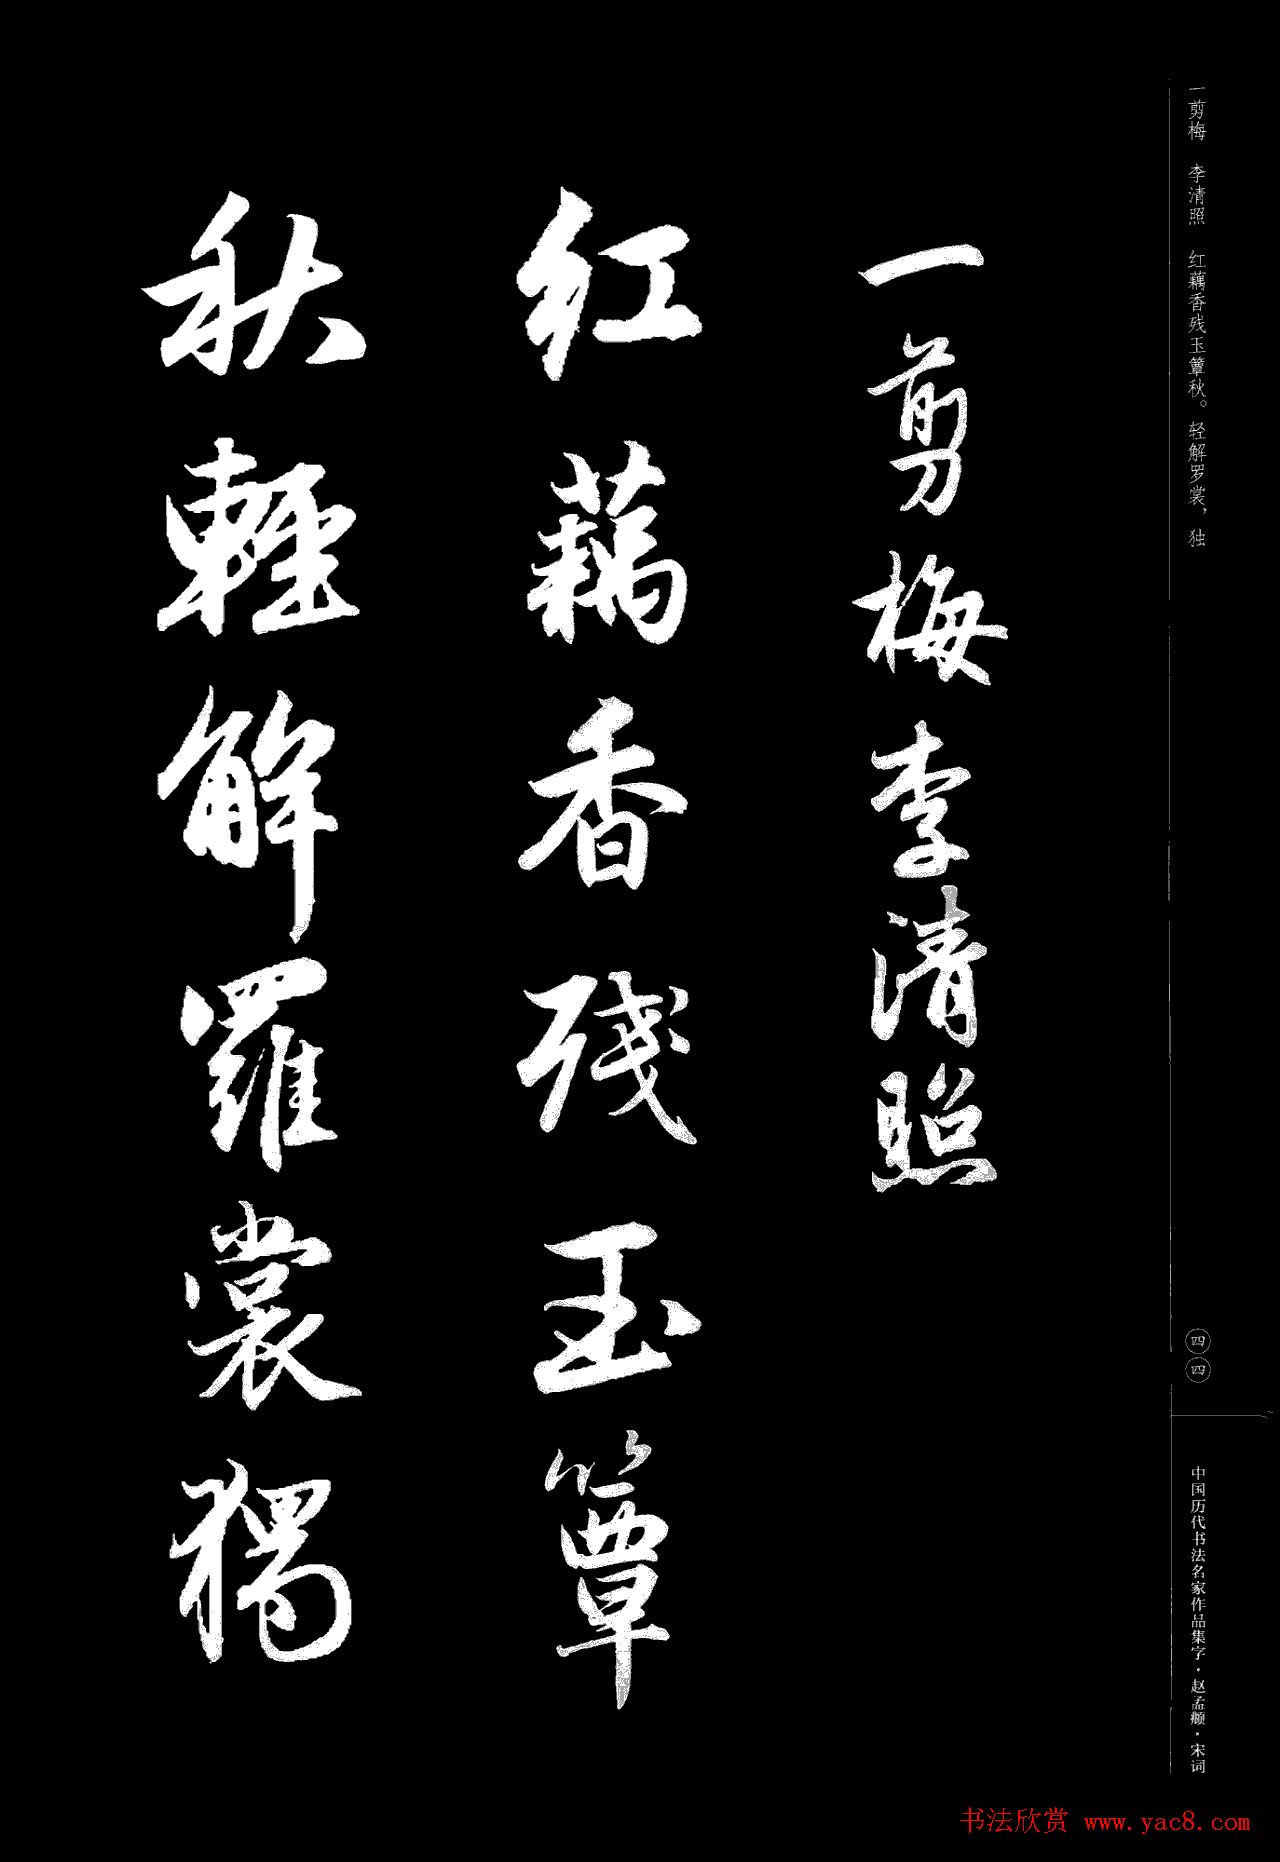 一剪梅 李清照 红藕香残玉簟秋。轻解罗裳，独
四四
中国历代书法名家作品集字·赵孟頫·宋词
一剪梅李清照
红藕香残玉簟
秋輕解羅裳獨
书法欣赏 www.yac8.com